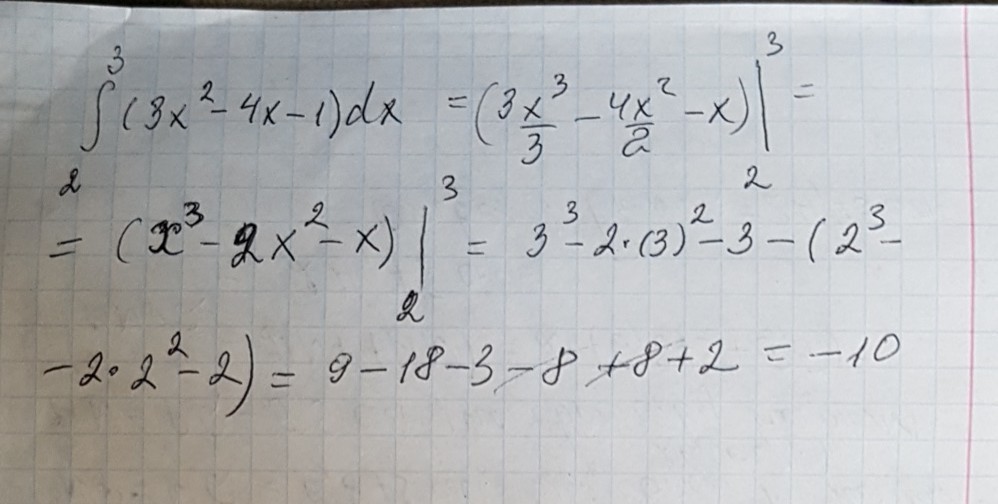 ∫₂³ (3x² - 4x - 1)dx = (3x³/3 - 4x²/2 - x)|₂³ =
= (x³ - 2x² - x)|₂³ = 3³ - 2·(3)² - 3 - (2³ -
- 2·2² - 2) = 9 - 18 - 3 - 8 + 8 + 2 = -10